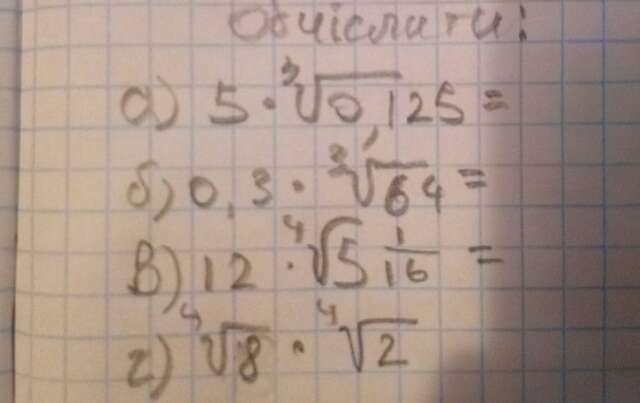 Обчіслити:
а) 5 · ∛0,125 =
б) 0,3 · ∛64 =
в) 12 · ∜5 1/16 =
г) ∜8 · ∜2